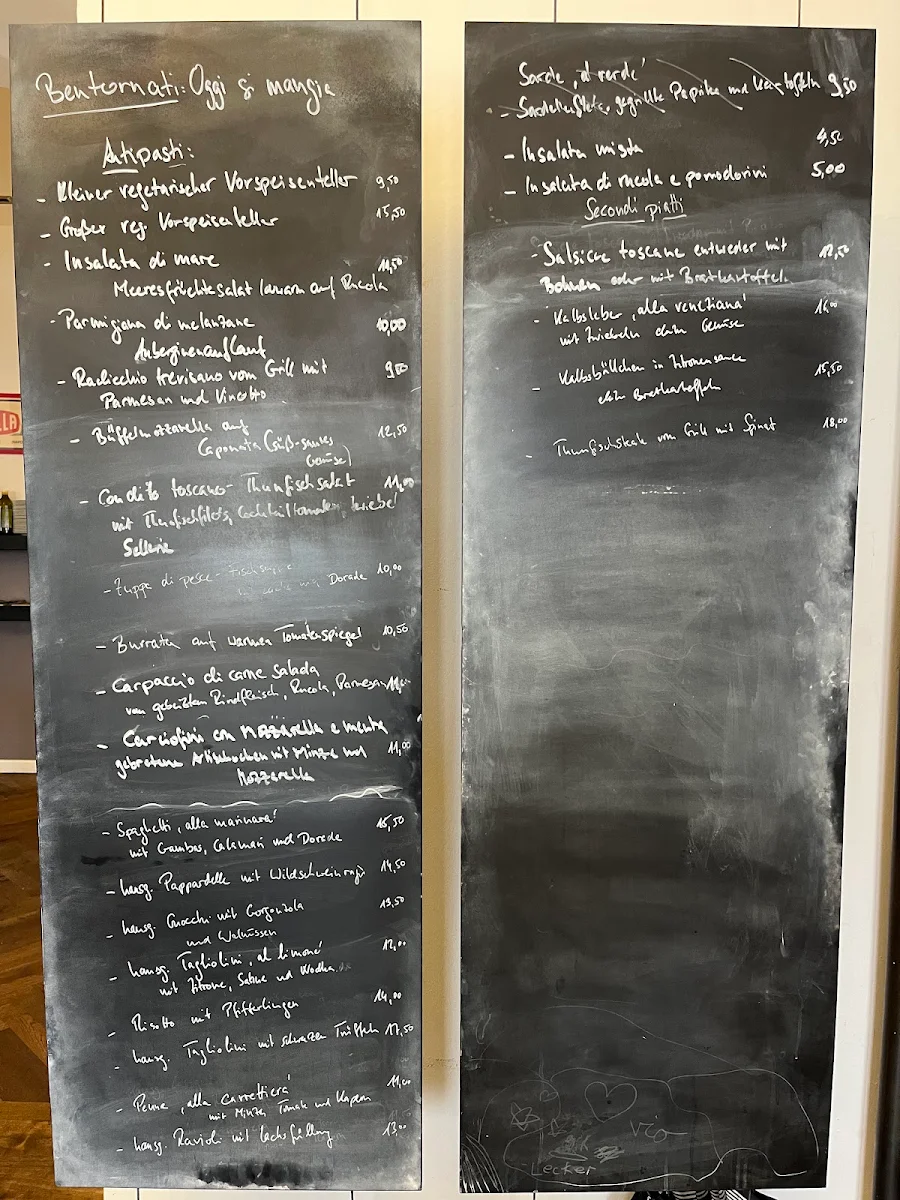 Bentornati: Oggi si mangia
Antipasti:
- Kleiner vegetarischer Vorspeisenteller 9,50
- Großer veg. Vorspeisenteller 15,50
- Insalata di mare 11,50
Meeresfrüchtesalat lauwarm auf Rucola
- Parmigiana di melanzane 10,00
Auberginenauflauf
- Radicchio trevisano vom Grill mit 9,00
Parmesan und Vincotto
- Büffelmozzarella auf 12,50
Caponata (süß-saures
Gemüse)
- Condito toscano - Thunfischsalat 11,00
mit Thunfischfilets, Cocktailtomaten,
Sellerie
- Zuppa di pesce - Fischsuppe 10,00
mit Dorade
- Burrata auf warmen Tomatenspiegel 10,50
- Carpaccio di carne salada
vom gebeizten Rindfleisch, Rucola, Parmesan
- Carciofini con mozzarella e menta
gebratene Artischocken mit Minze und 11,00
Mozzarella
- Spaghetti ‚alla marinara' 15,50
mit Gambas, Calamari und Dorade
- hausg. Pappardelle mit Wildschweinragù 14,50
- hausg. Gnocchi mit Gorgonzola 13,50
und Walnüssen
- hausg. Tagliolini ‚al limone' 12,00
mit Zitrone, Sahne und Wodka
- Risotto mit Pfifferlingen 14,00
- hausg. Tagliolini mit schwarzen Trüffeln 17,50
- Penne ‚alla carrettiera' 11,00
mit Minze, Tomate und Kapern
- hausg. Ravioli mit Lachsfüllung 13,00
Sarde
- Sardellenfilets, gegrillte Paprika und Kartoffeln 9,50
- Insalata mista 4,50
- Insalata di rucola e pomodorini 5,00
Secondi piatti
- Salsicce toscane entweder mit 12,50
Bohnen oder mit Bratkartoffeln
- Kalbsleber ‚alla veneziana'
mit Zwiebeln dazu Gemüse
- Kalbsbällchen in Zitronensauce 15,50
dazu Bratkartoffeln
- Thunfischsteak vom Grill mit Spinat 18,00
Vio
Lecker